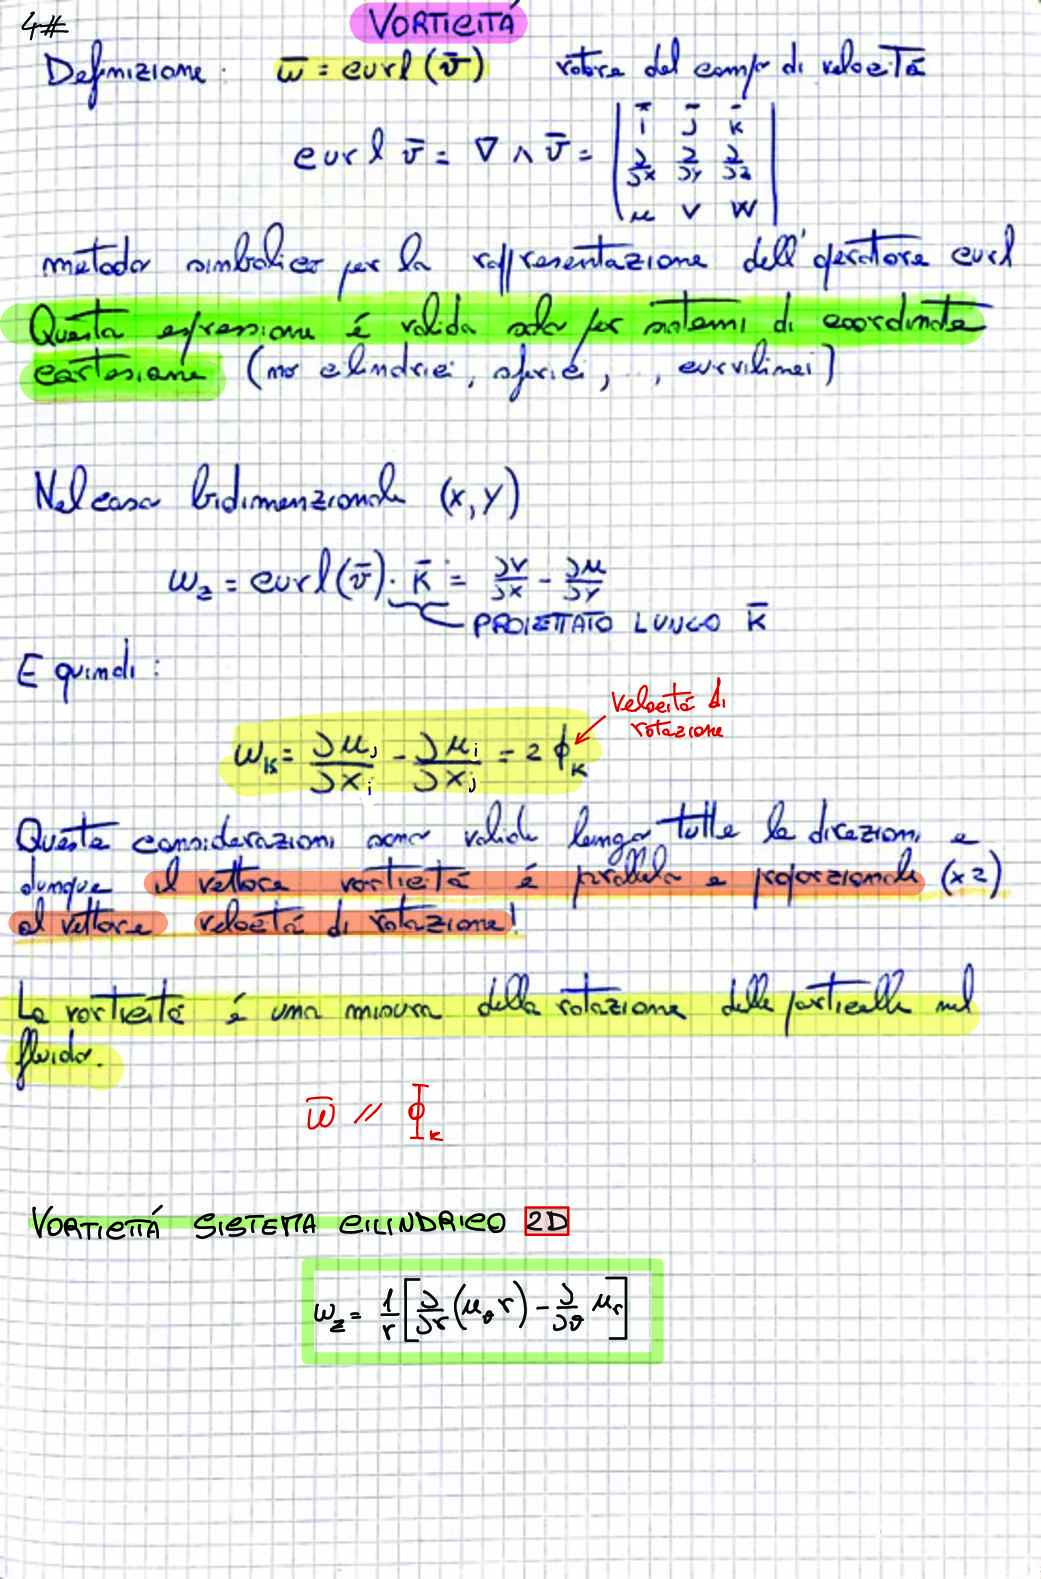 4#
VORTICITÁ
Definizione: w̄ = curl(v̄) rotore del campo di velocità
curl v̄ = ∇ ∧ v̄ = | ī j̄ k̄ |
| ∂/∂x ∂/∂y ∂/∂z |
| u v w |
metodo simbolico per la rappresentazione dell'operatore curl
Questa espressione é valida solo per sistemi di coordinate
cartesiane (no cilindrici, sferici, .., curvilinei)
Nel caso bidimenzionale (x, y)
w_z = curl(v̄)· k̄ = ∂v/∂x - ∂u/∂y
PROIETTATO LUNGO k̄
E quindi:
velocitá di
rotazione
w_k = ∂u_j/∂x_i - ∂u_i/∂x_j = 2 ϕ_k
Queste considerazioni sono valide lungo tutte le direzioni e
dunque il vettore vorticitá é parallelo e proporzionale (x2)
al vettore velocitá di rotazione!
La vorticitá é una misura della rotazione delle particelle nel
fluido.
w̄ // ϕ̄_k
VORTICITÁ SISTEMA CILINDRICO 2D
w_z = 1/r [∂/∂r (u_θ r) - ∂/∂θ u_r]